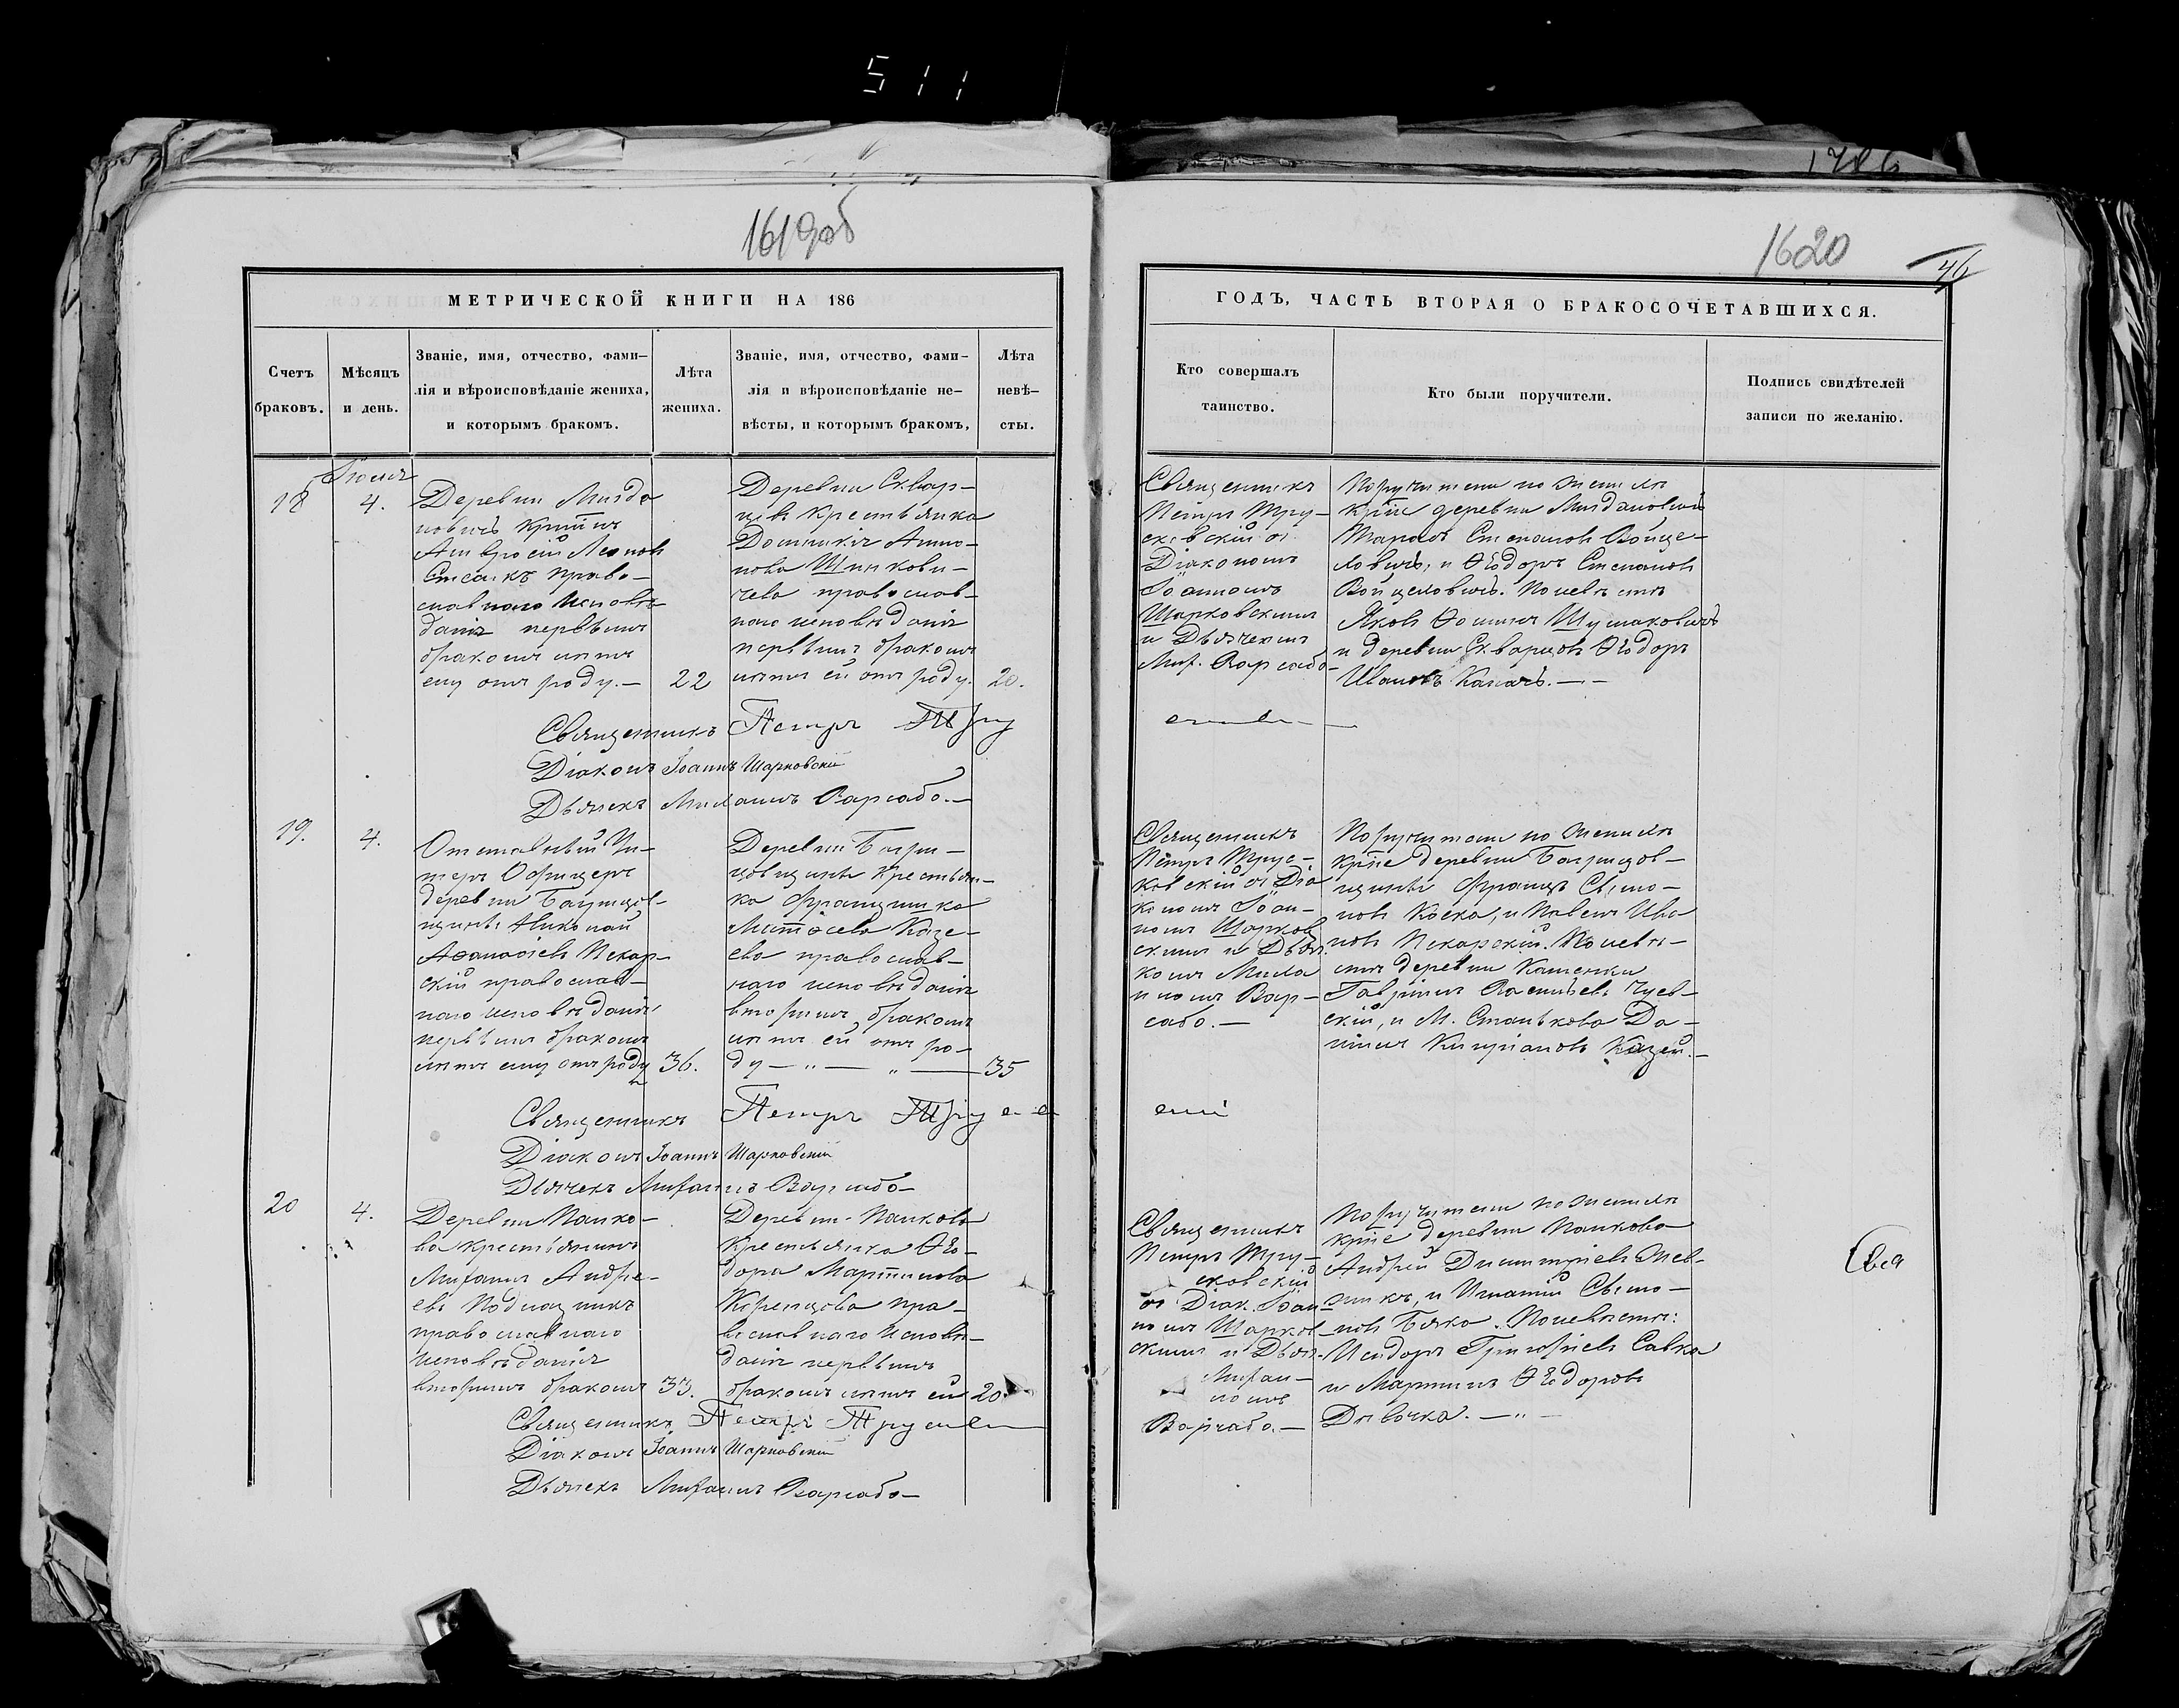 511
1786
1619об
1620
46
МЕТРИЧЕСКОЙ КНИГИ НА 186
ГОДЪ, ЧАСТЬ ВТОРАЯ О БРАКОСОЧЕТАВШИХСЯ.
Счетъ
браковъ.
Мѣсяцъ
и день.
Званіе, имя, отчество, фами-
лія и вѣроисповѣданіе жениха,
и которымъ бракомъ.
Лѣта
жениха.
Званіе, имя, отчество, фами-
лія и вѣроисповѣданіе не-
вѣсты, и которымъ бракомъ,
Лѣта
невѣ-
сты.
Кто совершалъ
таинство.
Кто были поручители.
Подпись свидѣтелей
записи по желанію.
18
4.
Деревни Миздо
новичъ
Амвросій Леоновъ
православнаго Исповѣ-
данія первымъ
бракомъ лѣтъ
ему отъ роду.—
22
Деревни Сквар-
цевъ Крестьянка
Доминикія Анто-
нова
чева православ-
наго исповѣданія
первымъ бракомъ
лѣтъ ей отъ роду.
20.
Священникъ
Петръ Тру-
сковскій съ
Діакономъ
Іоанномъ
Шарковскимъ
и Дьячкомъ
Мих. Варсабо-
Поручители по женихѣ
кр͞не деревни
Тарасъ Степановъ Войце-
ховичъ, и Ѳеодоръ Степановъ
Войцеховичъ. По невѣстѣ
Яковъ Ѳоминъ Шумаковичъ
и деревни Скварцовъ Ѳеодоръ
Ивановъ Капачъ.—
Священникъ Петръ Тру
Діаконъ Іоаннъ Шарковскій
Дьячекъ Михаилъ Варсабо.—
19.
4.
Отставный Ун-
теръ Офицеръ
деревни
щины Николай
Аѳанасіевъ Пекар-
скій православ-
наго исповѣданія
первымъ бракомъ
лѣтъ ему отъ роду
36.
Деревни Багри-
цовщины Крестьян-
ка Францишка
Матѳеева Козе-
ева православ-
наго исповѣданія
вторымъ бракомъ
лѣтъ ей отъ ро-
ду — „ — „ —
35
Священникъ
Петръ Трус-
ковскій съ Діа
кономъ Іоан-
номъ Шарков
скимъ и Дьяч.
комъ Миха
иломъ Вар-
сабо.—
Поручители по женихѣ
кр͞не деревни Багрицов-
щины Францъ Симо-
новъ Коска, и Павелъ Ива
новъ Пекарскій. По невѣ-
стѣ деревни Каменки
Гавріилъ Васильевъ Чуев-
скій, и М. Станькова Да-
ніилъ Кипріановъ Казей.—
Священникъ Петръ Тру
Діаконъ Іоаннъ Шарковскій
Дьячекъ Михаилъ Варсабо—
20
4.
Деревни Панко-
ва крестьянинъ
Михаилъ Андре-
евъ
православнаго
исповѣданія
вторымъ бракомъ
33.
Деревни Панкова
крестьянка Ѳео-
дора Мартинова
Коренцова пра-
вославнаго Исповѣ-
данія первымъ
бракомъ лѣтъ ей
20.
Священникъ
Петръ Тру-
сковскій
съ Діак. Іоан-
номъ Шарков-
скимъ и Дьяч.
Михаи-
ломъ
Варсабо.—
Поручители по женихѣ
кр͞не деревни Панкова
Андрей Димитріевъ Шев-
чикъ, и Игнатій Симо-
новъ Бачко. По невѣстѣ:
Исидоръ Григоріевъ Савко
и Мартинъ Ѳеодоровъ
Дѣвочка. — „ —
Священникъ Петръ
Діаконъ Іоаннъ Шарковскій
Дьячекъ Михаилъ Варсабо—